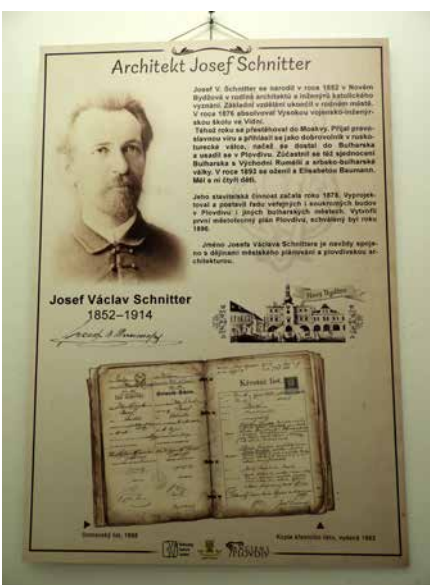 Architekt Josef Schnitter
Josef V. Schnitter se narodil v roce 1852 v Novém
Bydžově v rodině architektů a inženýrů katolického
vyznání. Základní vzdělání ukončil v rodném městě.
V roce 1876 absolvoval Vysokou vojensko-inženýr-
skou školu ve Vídni.
Téhož roku se přestěhoval do Moskvy. Přijal pravo-
slavnou víru a přihlásil se jako dobrovolník v rusko-
turecké válce, načež se dostal do Bulharska
a usadil se v Plovdivu. Zúčastnil se též sjednocení
Bulharska s Východní Rumélií a srbsko-bulharské
války. V roce 1892 se oženil s Elisabetou Baumann.
Měl s ní čtyři děti.
Jeho stavitelská činnost začala roku 1878. Vyprojek-
toval a postavil řadu veřejných i soukromých budov
v Plovdivu i jiných bulharských městech. Vytvořil
první městotvorný plán Plovdivu, schválený byl roku
1896.
Jméno Josefa Václava Schnittera je navždy spoje-
no s dějinami městského plánování a plovdivskou ar-
chitekturou.
Josef Václav Schnitter
1852–1914
Nový Bydžov
Křestní list.
Domovský list, 1898
Kopie křestního listu, vydaná 1882